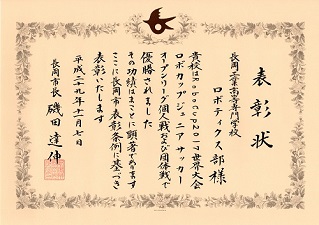 表彰状
長岡工業高等専門学校
ロボティクス部様
貴校はRoboCup2017世界大会
ロボカップジュニア サッカー
オープンリーグ個人戦および団体戦で
優勝されました
その功績はまことに顕著であります
ここに長岡市表彰条例に基づき
表彰いたします
平成二十九年十一月七日
長岡市長 磯田達伸